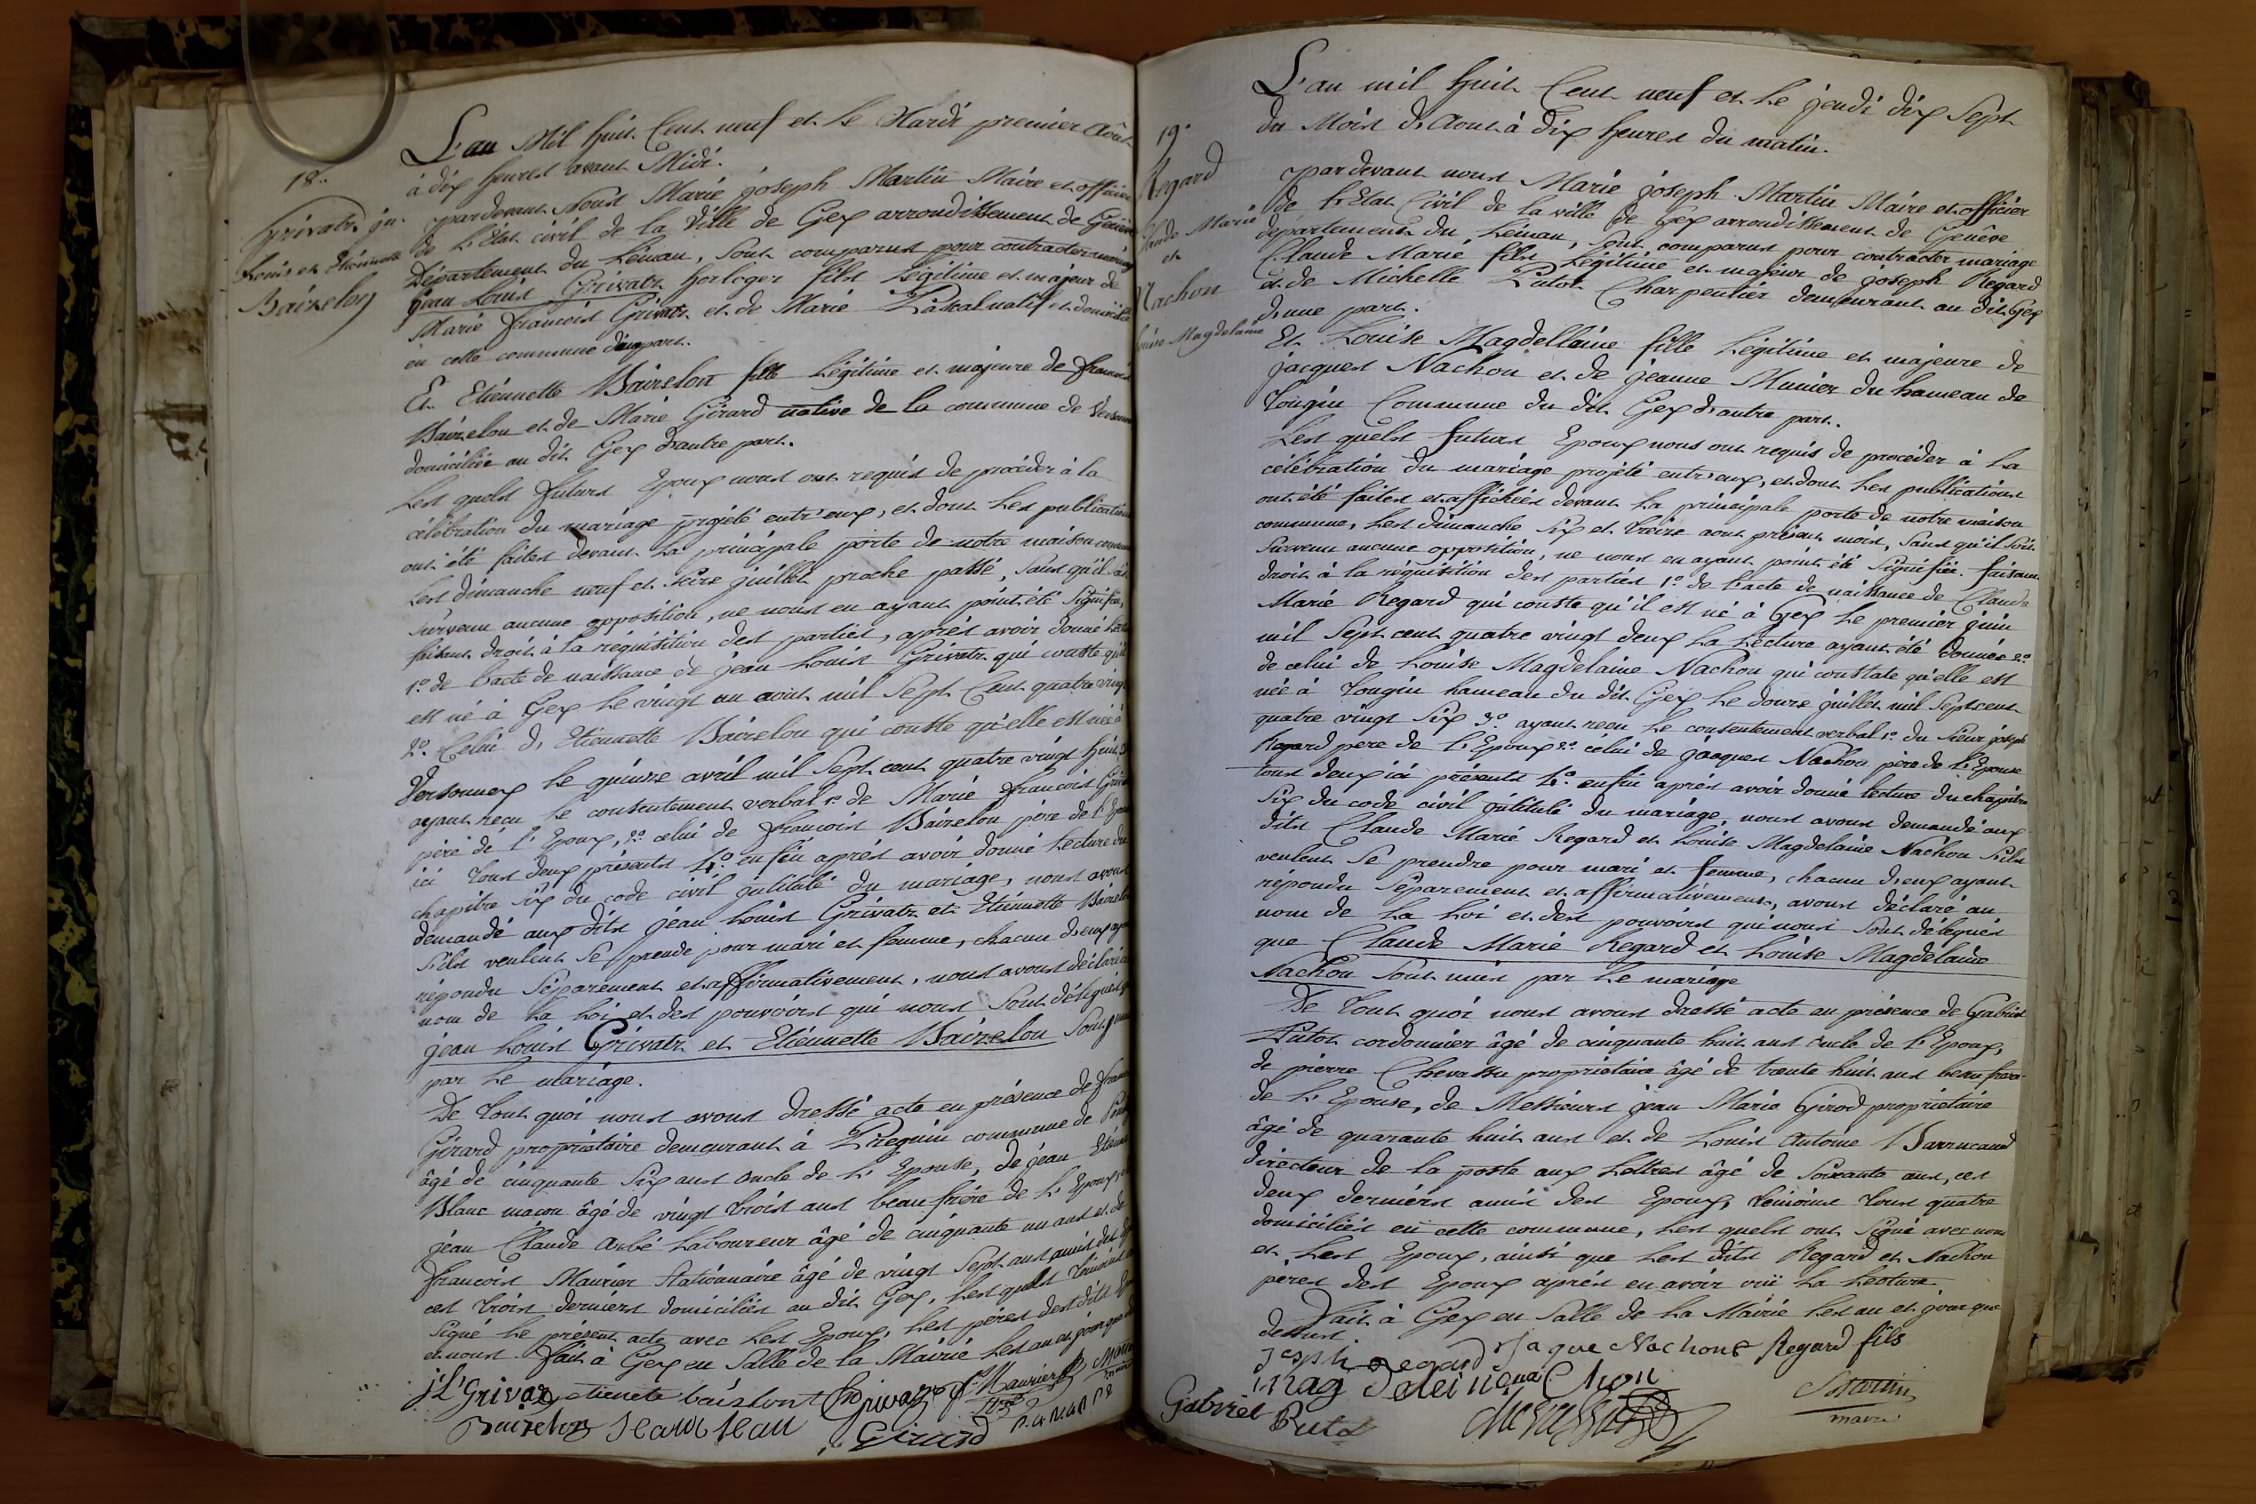 18..
Grivatz jn.
Louis et Etiennette
Baizelon
L'an Mil huit Cent neuf et le Mardi premier Août
à dix heures avant Midi.
pardevant Nous Marie joseph Martin Maire et officier
de L'Etat civil de la Ville de Gex arrondissement de Genève
Département du Léman, sont comparus pour contracter mariage
jean Louis Grivatz horloger fils Légitime et majeur de
Marie françois Grivatz et de Marie Paskal natif et domicilié
en cette commune d'une part.
Et Etiennette Baizelon fille Légitime et majeure de françois
Baizelon et de Marie Girard native de la commune de Versonnex
domiciliée au dit Gex d'autre part.
Les quels futurs Epoux nous ont requis de procéder à la
célébration du mariage projeté entr'eux, et dont les publications
ont été faites devant la principale porte de notre maison commune
Les dimanche neuf et seize juillet proche passé, sans qu'il soit
survenu aucune opposition, ne nous en ayant point été signifiée,
faisant droit à la réquisition des parties, après avoir donné lecture
1.º de L'acte de naissance de jean Louis Grivatz qui conste qu'il
est né à Gex le vingt un aout mil sept Cent quatre vingt
2.º Celui d'Etiennette Baizelon qui conste qu'elle est née à
Versonnex le quinze avril mil sept cent quatre vingt huit 3.º
ayant reçu le consentement verbal 1.º de Marie françois Grivatz
père de L'Epoux, 2.º celui de françois Baizelon père de L'Epouse
ici tous deux présents 4.º enfin après avoir donné Lecture du
chapitre six du code civil jntitulé du mariage, nous avons
demandé aux dits jean Louis Grivatz et Etiennette Baizelon
s'ils veulent se prendre pour mari et femme, chacun d'eux ayant
répondu séparement et affirmativement, nous avons déclaré au
nom de La Loi et des pouvoirs qui nous sont délégués que
jean Louis Grivatz et Etiennette Baizelon sont unis
par le mariage.
De tout quoi nous avons dressé acte en présence de françois
Girard propriétaire demeurant à Prégnin commune de
âgé de cinquante six ans oncle de L'Epouse, de jean Etienne
Blanc maçon âgé de vingt trois ans beau frère de L'Epoux,
jean Claude Arbé Laboureur âgé de cinquante un ans et de
françois Maurier Stationnaire âgé de vingt sept ans amis des
ces trois derniers domiciliés au dit Gex, Les quels témoins ont
signé Le présent acte avec Les Epoux, Les pères des dits Epoux
et nous. fait à Gex en salle de la Mairie Les an et jour que
j. L. Grivaz etienete baizlont Grivaz f.s Maurier Martin
Baizelon Girard
19.
Regard
Claude Marie
et
Nachon
Louise Magdelaine
L'an mil huit Cent neuf et Le jeudi dix sept
du Mois d'Aout à dix heures du matin.
pardevant nous Marie joseph Martin Maire et officier
de L'Etat Civil de la ville de Gex arrondissement de Genêve
département du Léman, sont comparus pour contracter mariage
Claude Marie fils Légitime et majeur de joseph Regard
et de Michelle Putot Charpentier demeurant au dit Gex
d'une part.
Et Louise Magdellaine fille Légitime et majeure de
jacques Nachon et de jeanne Munier du hameau de
Tougin Commune du dit Gex d'autre part.
Les quels futurs Epoux nous ont requis de procéder à la
célébration du mariage projeté entr'eux, et dont Les publications
ont été faites et affichées devant la principale porte de notre maison
commune, Les dimanche six et treize aout présent mois, sans qu'il soit
survenu aucune opposition, ne nous en ayant point été signifiée. faisant
droit à la réquisition des parties 1.º de L'acte de naissance de Claude
Marie Regard qui conste qu'il est né à Gex Le premier juin
mil sept cent quatre vingt deux la Lecture ayant été donnée 2.º
de celui de Louise Magdelaine Nachon qui constate qu'elle est
née à Tougin hameau du dit Gex Le douze juillet mil sept cent
quatre vingt six 3.º ayant reçu Le consentement verbal 1.º du sieur joseph
Regard pere de L'Epoux 2.º celui de jacques Nachon père de L'Epouse
tous deux ici présents 4.º enfin après avoir donné lecture du chapitre
six du code civil jntitulé du mariage, nous avons demandé aux
dits Claude Marie Regard et Louise Magdelaine Nachon s'ils
veulent se prendre pour mari et femme, chacun d'eux ayant
répondu séparement et affirmativement, avons déclaré au
nom de La Loi et des pouvoirs qui nous sont délégués
que Claude Marie Regard et Louise Magdelaine
Nachon sont unis par Le mariage
De tout quoi nous avons dressé acte en présence de Gabriel
Putot cordonnier âgé de cinquante huit ans oncle de L'Epoux,
de pierre Chevassu propriétaire âgé de trente huit ans beau frere
de L'Epouse, de Messieurs jean Marie Girod propriétaire
âgé de quarante huit ans et de Louis Antoine Barrucand
directeur de la poste aux Lettres âgé de soixante ans, ces
deux derniers amis des Epoux, témoins tous quatre
domiciliés en cette commune, Les quels ont signé avec nous
et Les Epoux, ainsi que Les dits Regard et Nachon
pères des Epoux après en avoir ouï La Lecture.
Fait à Gex en Salle de La Mairie Les an et jour que
dessus.
Joseph Regard Jaque Nachon Regard fils
Mag
Gabriel Putot Chevassu Martin
maire